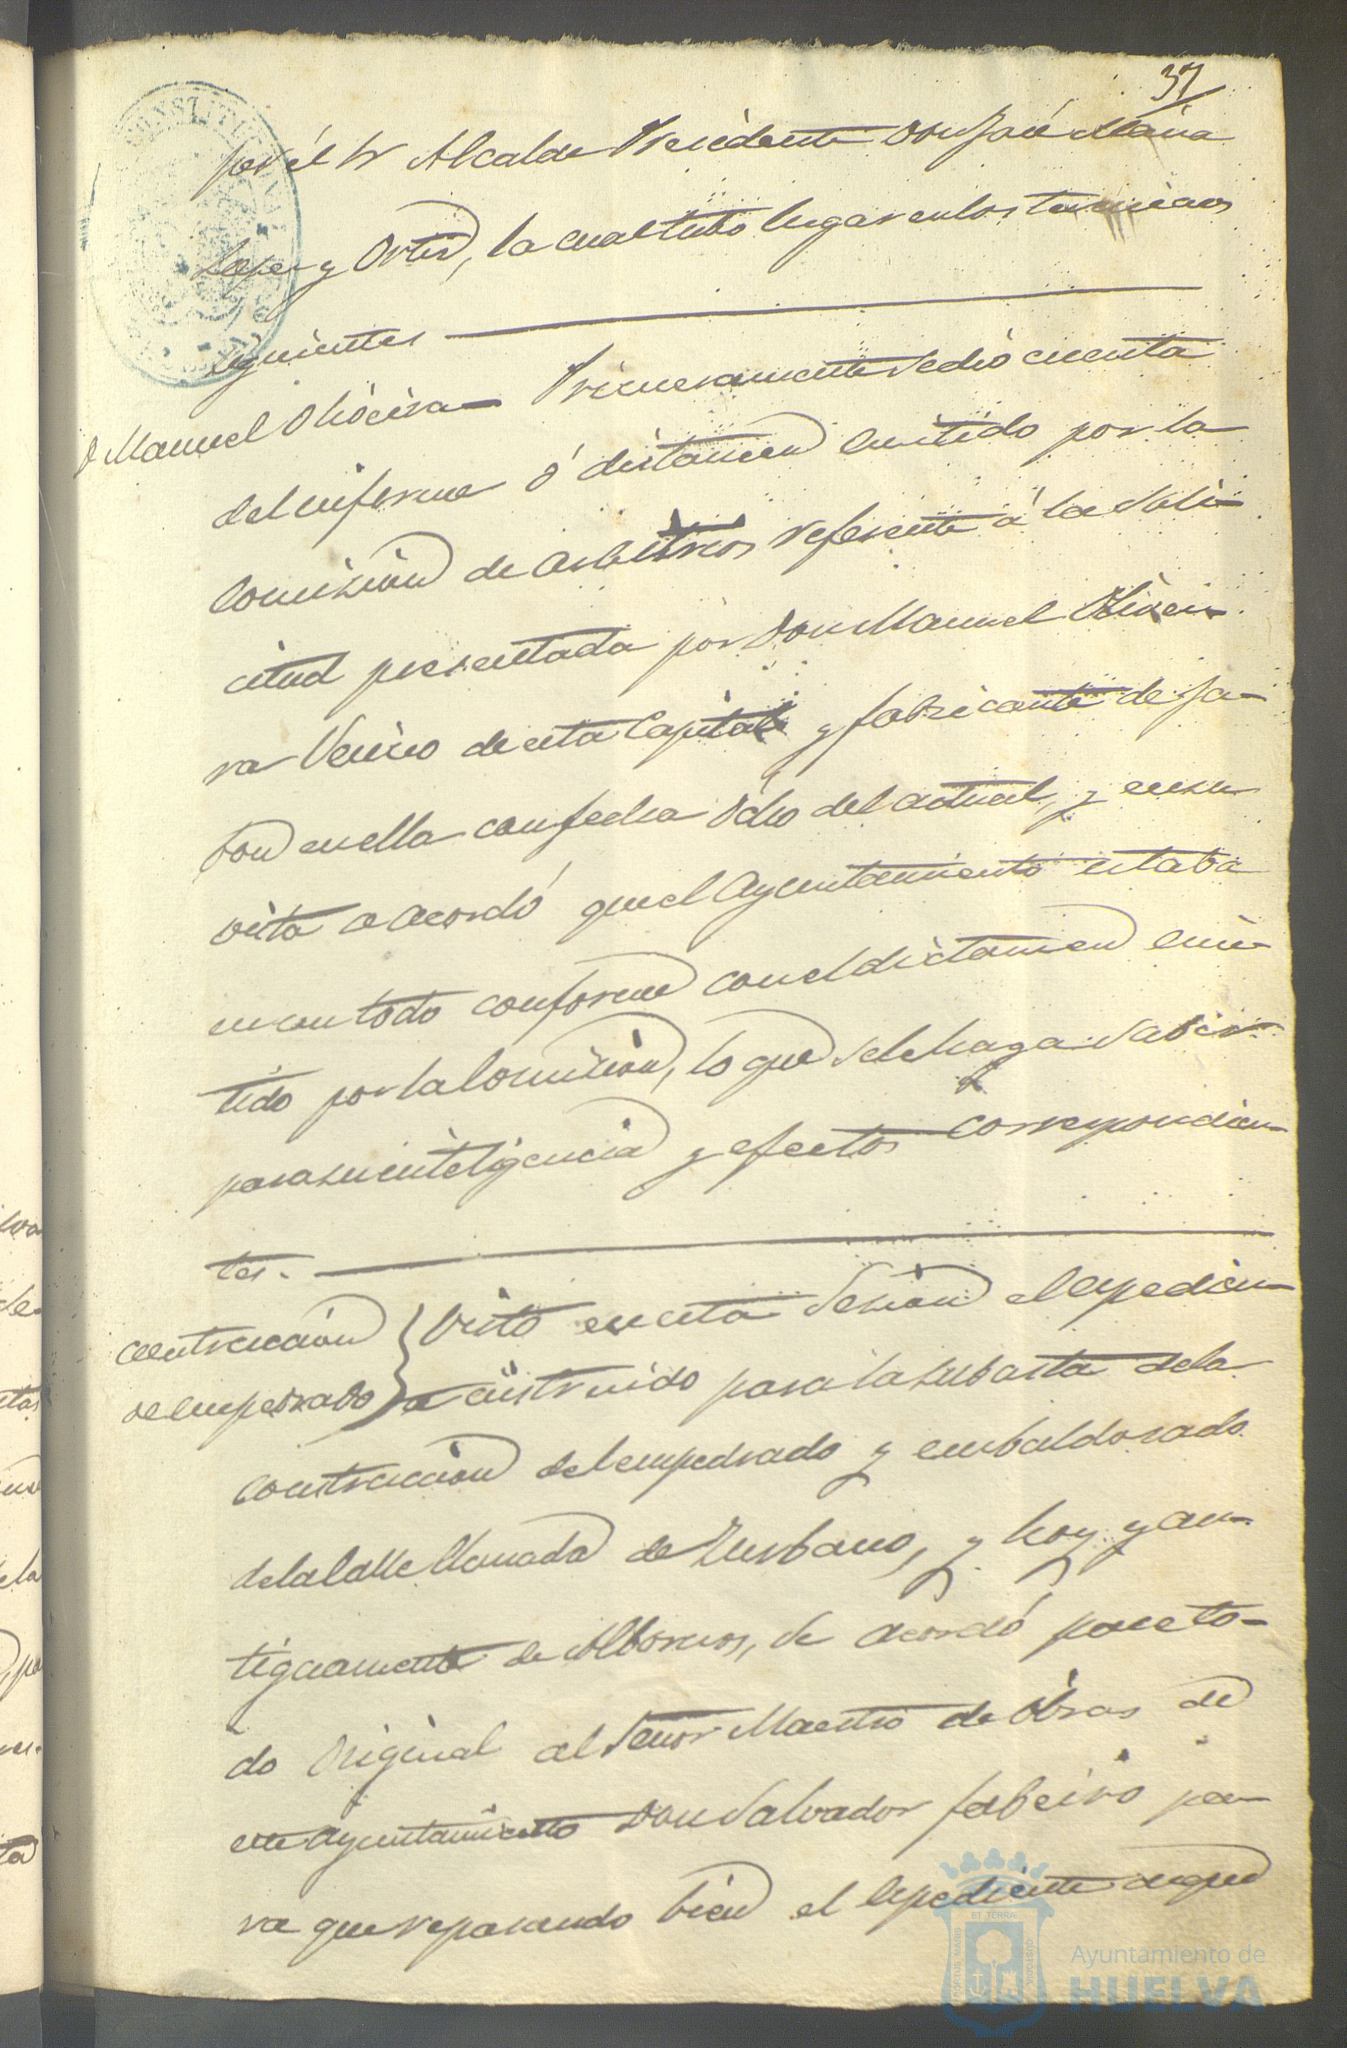 37
por él Sr Alcalde Presidente Don José Maria
Lopez y Ortiz, la cual tubo lugar en los terminos
siguientes
D Manuel Oliveira - Primeramente se dió cuenta
del informe ó dictamen emitido por la
Comision de arbitrios referente á la soli-
citud presentada por Don Manuel Olivei-
ra Vecino de esta Capital y fabricante de ja-
bon en ella con fecha Ocho del actual, y en su
vista a acordó que el Ayuntamiento estaba
en un todo conforme con el dictamen emi-
tido por la Comision, lo que se le haga saber
para su inteligencia y efectos correspondien-
tes.
Contruccion
de empedrado
Visto en esta Sesion el espedien-
te instruido para la subasta de la
Contruccion del empedrado y embaldosado
de la Calle llamada de Zurbano, y hoy y an-
tiguamente de Albornos, se acordó pase to-
do Original al Señor Maestro de Obras de
este ayuntamiento Don Salvador fabeiro pa-
ra que repasando bien el Espediente
ET TERRÆ
Ayuntamiento de
HUELVA